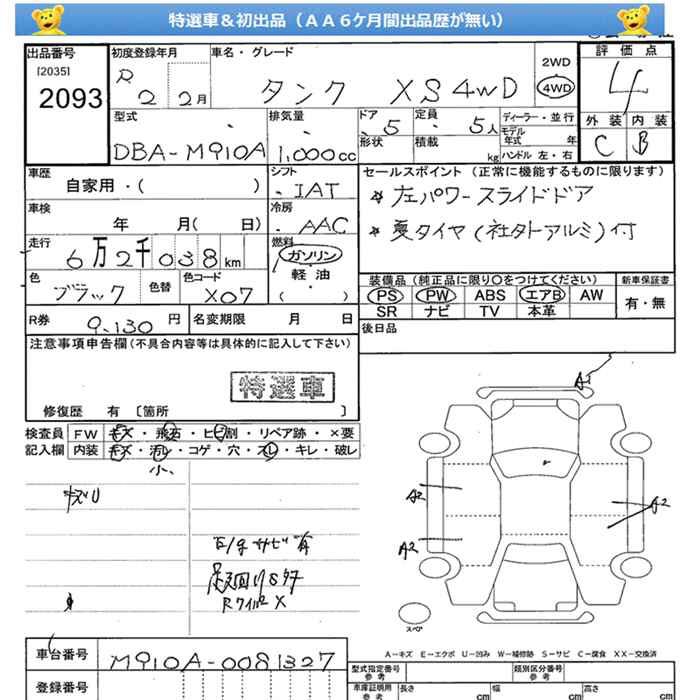 特選車&初出品(AA6ケ月間出品歴が無い)
出品番号 初度登録年月 車名・グレード 2WD 4WD 評価点
[2035]
2093
R 2 2月 タンク XS 4WD 4
型式 排気量 ドア 定員 ディーラー・並行 外装 内装
DBA-M910A 1,000cc 5 5人 モデル年式 年 C B
形状 積載 kg ハンドル 左・右
車歴 シフト セールスポイント(正常に機能するものに限ります)
自家用・( ) IAT ★左パワースライドドア
車検 冷房 ★夏タイヤ(社外アルミ)付
年 月( 日) AAC
走行 燃料
6万2千038km ガソリン
軽油
・( )
色 色替 色コード 装備品(純正品に限り○をつけてください) 新車保証書
ブラック X07 PS PW ABS エアB AW 有・無
SR ナビ TV 本革
R券 9,130円 名変期限 月 日 後日品
注意事項申告欄(不具合内容等は具体的に記入して下さい)
特選車
修復歴 有 [箇所 ]
検査員 FW キズ・飛石・ヒビ割・リペア跡・×要
記入欄 内装 キズ・汚レ・コゲ・穴・スレ・キレ・破レ
小、
A1
キズU
A2
A2
A2
下廻サビ有
足廻りサビ
X
スペア
A-キズ E-エクボ U-凹み W-補修跡 S-サビ C-腐食 XX-交換済
車台番号 M910A-0081327
登録番号
型式指定番号 参考 類別区分番号 参考
車庫証明用 参考 長さ cm 幅 cm 高さ cm